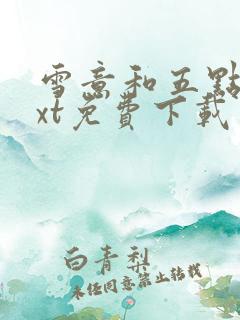 雪意和五點
xt免費下載
白青梨
未经同意禁止转载